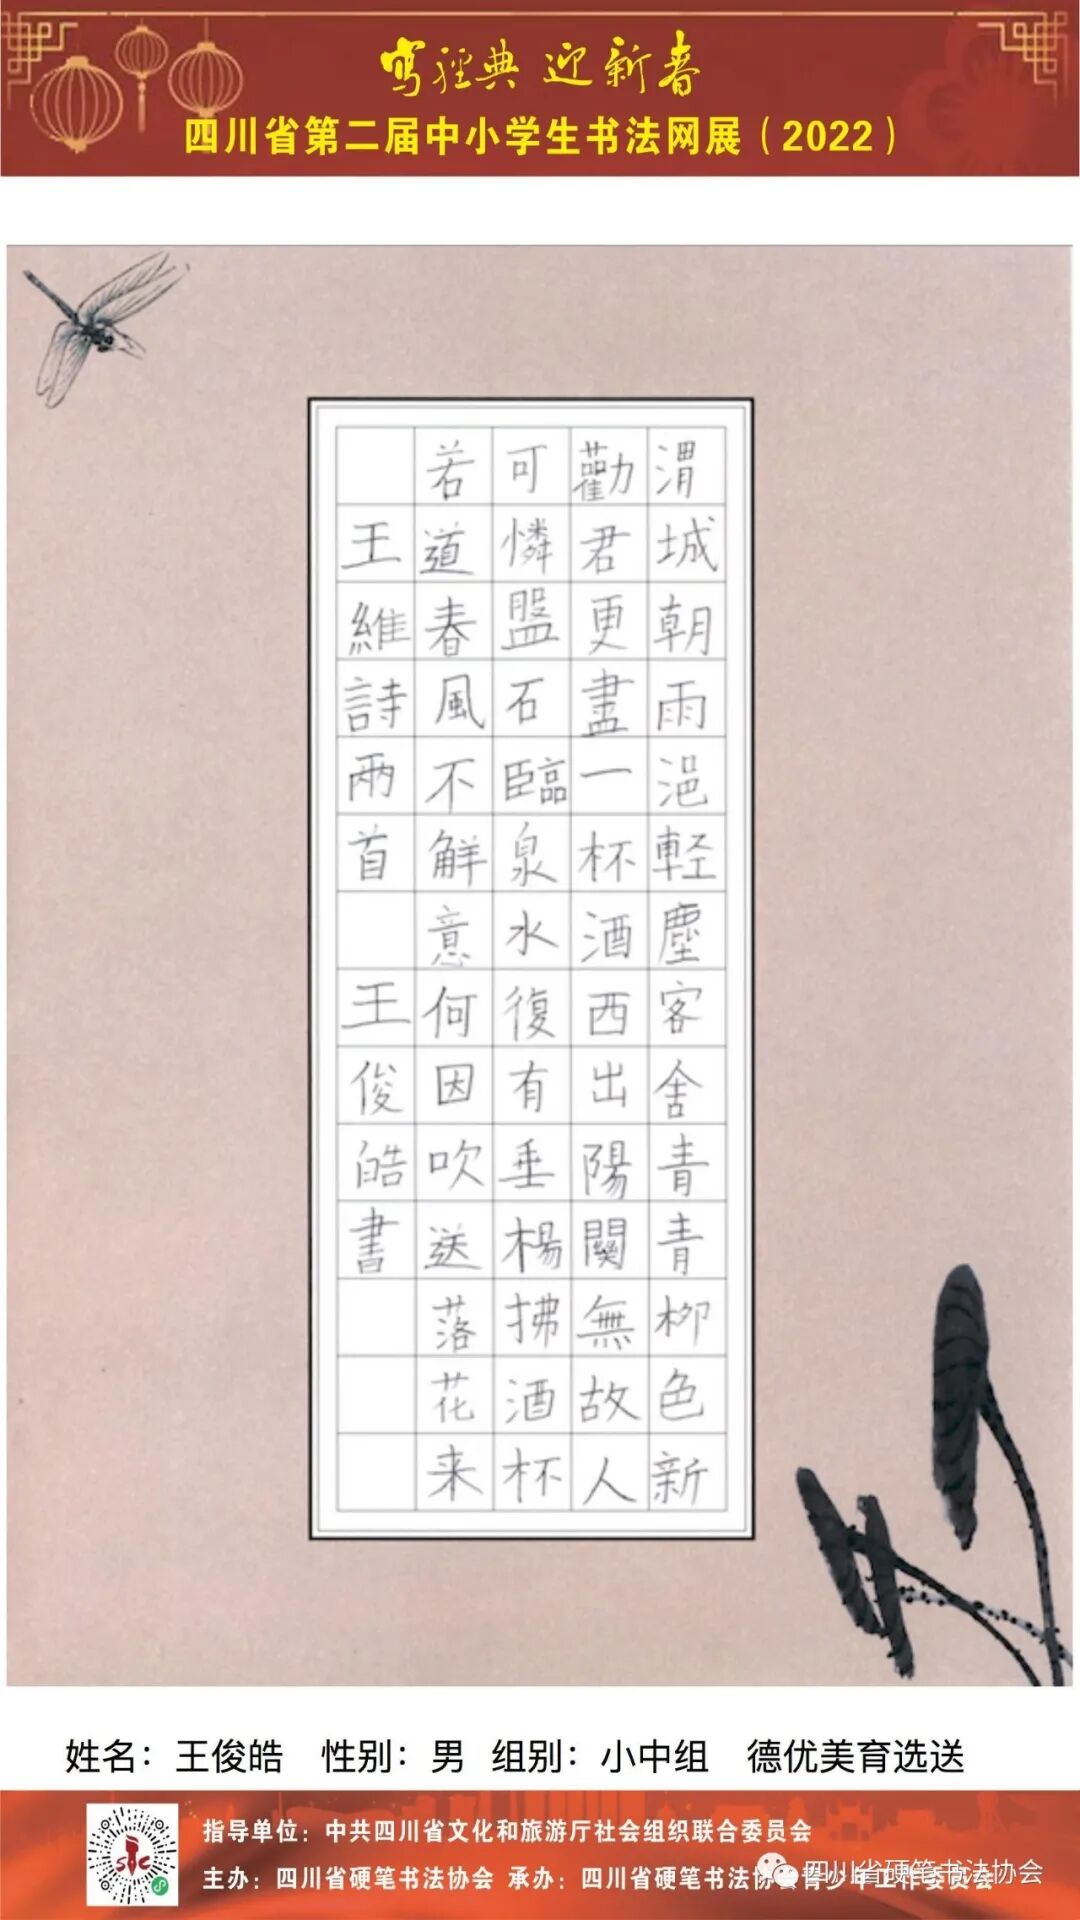 写经典 迎新春
四川省第二届中小学生书法网展（2022）
渭城朝雨浥輕塵客舍青青柳色新
勸君更盡一杯酒西出陽關無故人
可憐盤石臨泉水復有垂楊拂酒杯
若道春風不解意何因吹送落花来
王維詩兩首 王俊皓書
姓名：王俊皓 性别：男 组别：小中组 德优美育选送
指导单位：中共四川省文化和旅游厅社会组织联合委员会
主办：四川省硬笔书法协会 承办：四川省硬笔书法协会青少年工作委员会
四川省硬笔书法协会